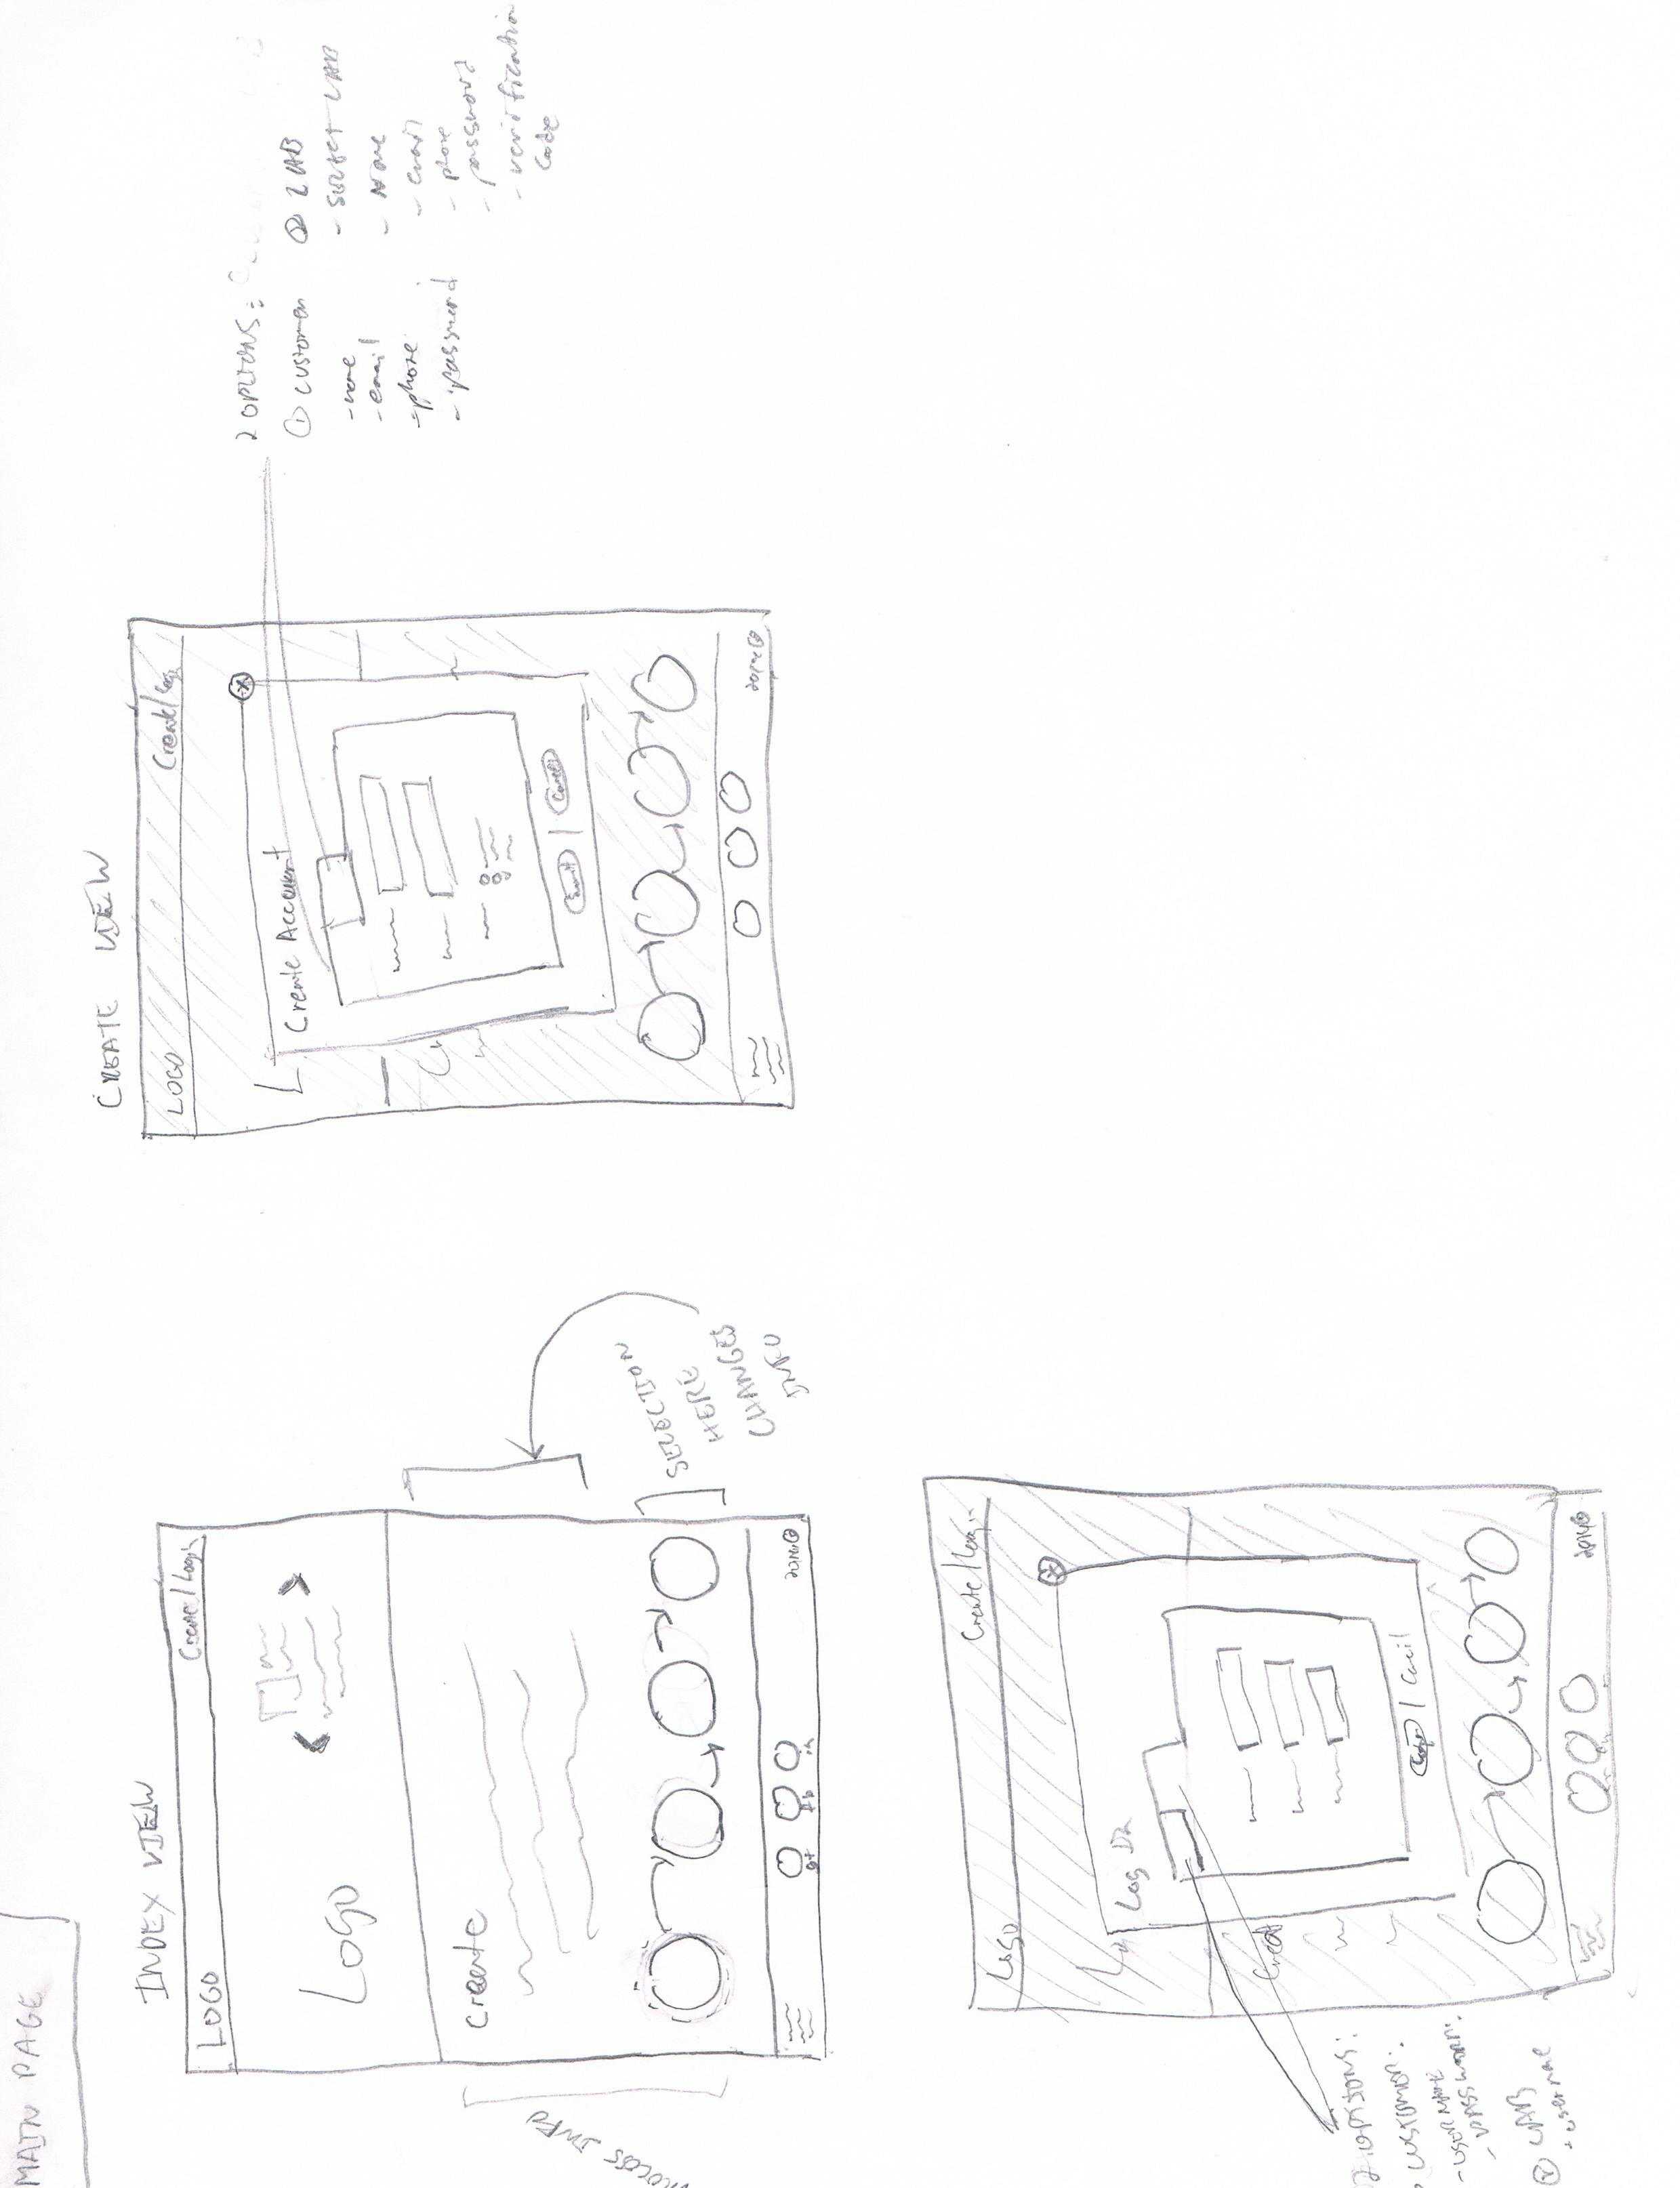 MAIN PAGE
INDEX VIEW
LOGO
Create / Login
Logo
Create
2014©
g+ fb in
SELECTION
HERE
CHANGES
INFO
INFO
CREATE VIEW
LOGO
Create / Log
Create Account
Cancel
2014©
2 OPTIONS:
① CUSTOMER
- name
- email
- phone
- password
② LAB
- SELECT LAB
- Name
- email
- phone
- password
- verification
code
Logo
Create / Log
Log In
Create
2014©
OPTIONS:
CUSTOMER:
- USERNAME
- PASSWORD
② LAB
- username